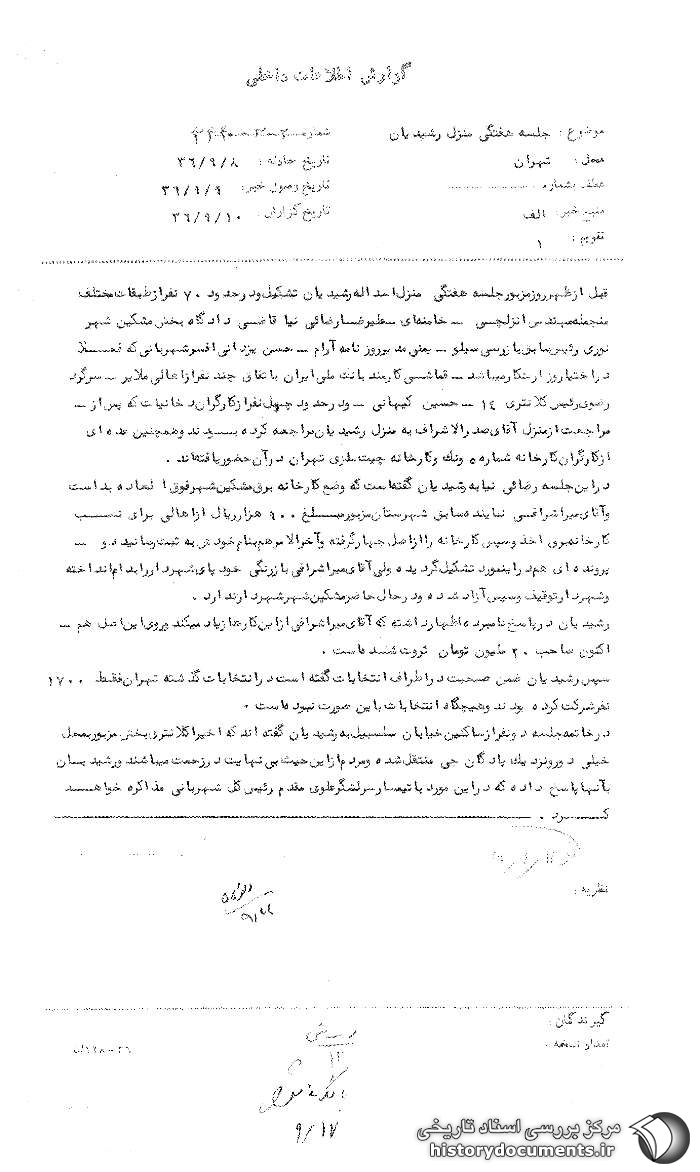 گزارش اطلاعات داخلی
موضوع : جلسه هفتگی منزل رشیدیان
شماره
محل : تهران
تاریخ حادثه : ۳۶/۹/۸
عطف بشماره
تاریخ وصول خبر : ۳۶/۹/۹
منبع خبر : الف
تاریخ گزارش : ۳۶/۹/۱۰
تقویم : ۱
قبل از ظهر روز مزبور جلسه هفتگی منزل اسداله رشیدیان تشکیل و در حدود ۷۰ نفر از طبقات مختلف
منجمله مهندس انزلچی – خامنه‌ای – علیرضا رضائی نیا قاضی دادگاه بخش مشکین شهر
نوری رئیس سابق بازرسی سیلو – مدیر روزنامه آرام – حسن یزدانی افسر شهربانی که فعلا
در اختیار وزارتکار میباشد – قماشی کارمند بانک ملی ایران باتفاق چند نفر از اهالی ملایر – سرگرد
رضوی رئیس کلانتری ۱۴ – حسین کیهانی – و در حدود چهل نفر از کارگران دخانیات که پس از –
مراجعت از منزل آقای صدرالاشراف به منزل رشیدیان مراجعه کرده بودند و همچنین عده ای
از کارگران کارخانه شماره ونک و کارخانه چیت سازی تهران در آن حضور یافته‌اند .
در این جلسه رضائی نیا به رشیدیان گفته است که وضع کارخانه برق مشکین شهر فوق العاده بد است
و آقای میراشرافی نماینده سابق شهرستان مزبور مبلغ ۹۰۰ هزار ریال از اهالی برای نصب
کارخانه مزبور اخذ و سپس کارخانه را از اصل چهار گرفته و آخرالامر هم بنام خودش به ثبت رسانیده و –
پرونده ای هم در اینمورد تشکیل گردیده ولی آقای میراشرافی با زرنگی خود پای شهردار را بدام انداخته
و شهردار توقیف و سپس آزاد شده و در حال حاضر مشکین شهر شهردار ندارد .
رشیدیان در پاسخ نامبرده اظهار داشته که آقای میراشرافی از این کارها زیاد میکند و روی این اصل هم –
اکنون صاحب ۲۰ ملیون تومان ثروت شده است .
سپس رشیدیان ضمن صحبت در اطراف انتخابات گفته است در انتخابات گذشته تهران فقط ۱۷۰۰
نفر شرکت کرده بودند و هیچگاه انتخابات باین صورت نبوده است .
در خاتمه جلسه دو نفر از ساکنین خیابان سلسبیل به رشیدیان گفته اند که اخیرا کلانتری بخش مزبور بمحل
خیلی دور و نزدیک پادگان جی منتقل شده و مردم از این حیث بی نهایت در زحمت میباشند و رشیدیان
بآنها پاسخ داده که در این مورد با تیمسار سرلشگر علوی مقدم رئیس کل شهربانی مذاکره خواهد
کرد .
نظریه :
گیرندگان :
تعداد نسخه :
۹/۱۷
مرکز بررسی اسناد تاریخی
historydocuments.ir